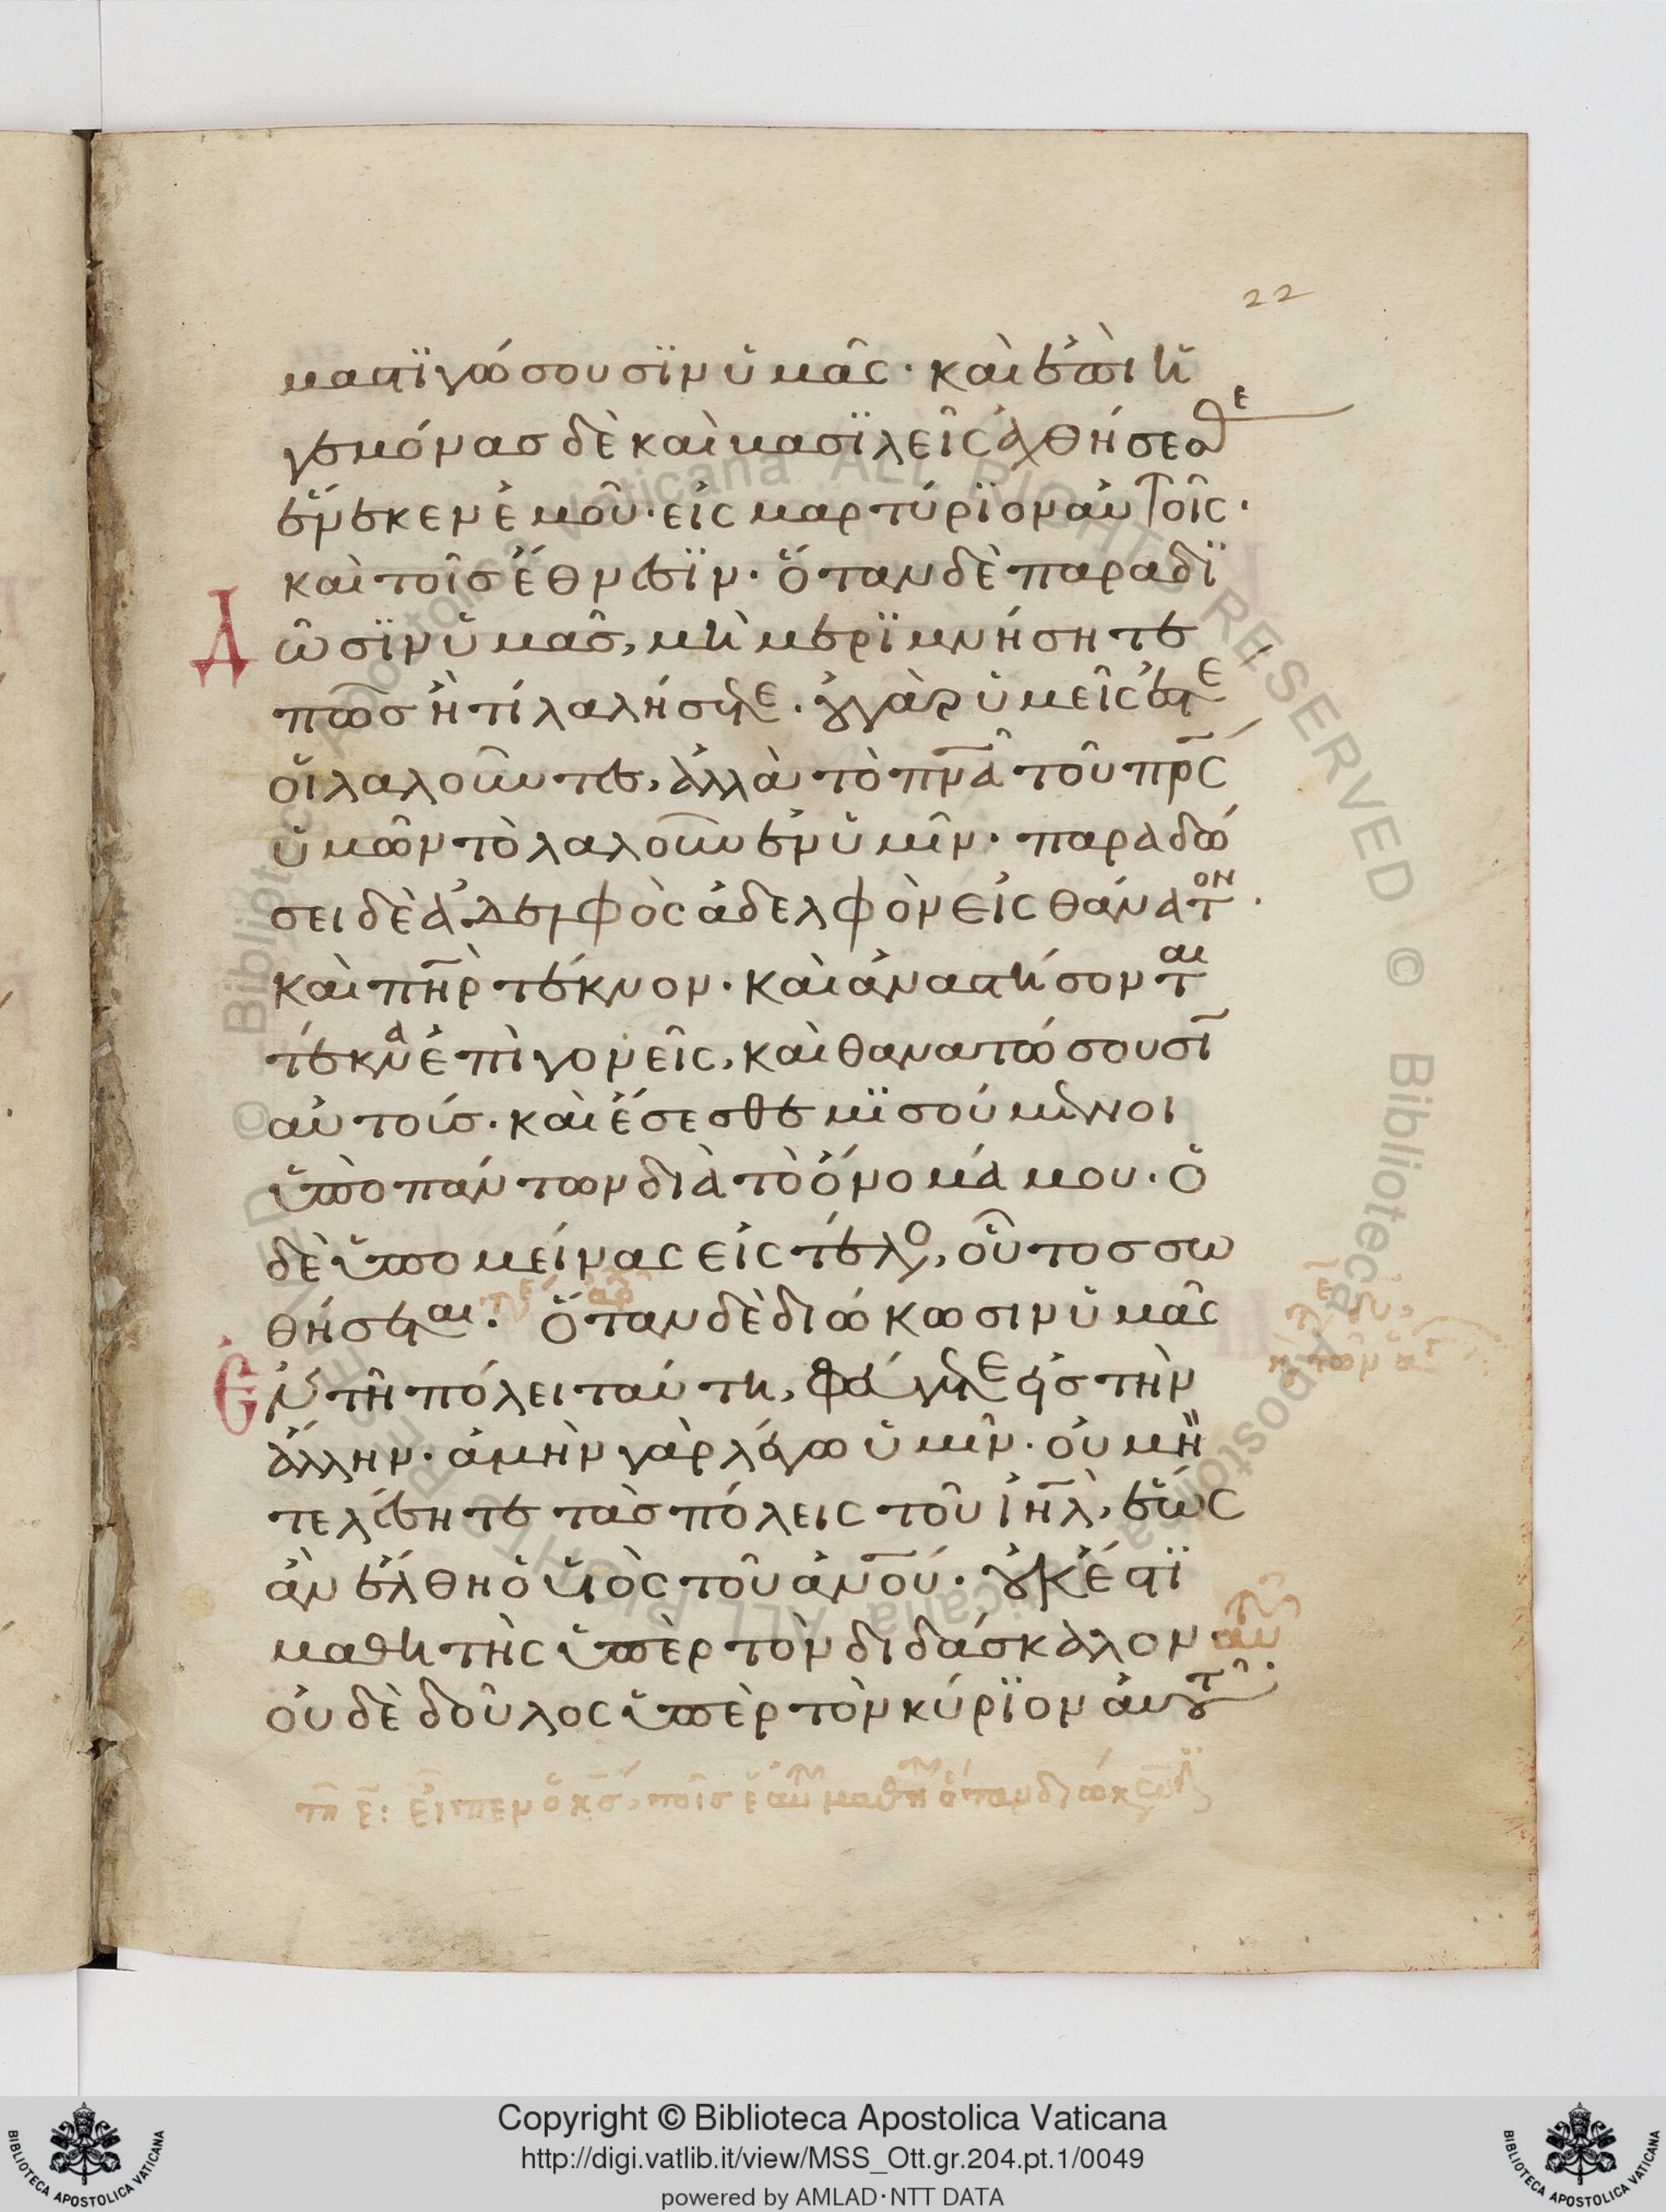 22
μαστϊγώσουσϊν ὑμᾶς· καὶ ἐπὶ ἡ
γεμόνας δὲ καὶ βασϊλεῖς ἀχθήσεσθε
ἕνεκεν ἐμοῦ· εἰς μαρτύρϊον αὐτοῖς·
καὶ τοῖς ἔθνεσϊν· ὅταν δὲ παραδϊ
δῶσϊν ὑμᾶς, μὴ μερϊμνήσητε
πῶς ἢ τί λαλήσητε· οὐ γὰρ ὑμεῖς ἐστε
οἱ λαλοῦντες, ἀλλὰ τὸ πνᾶ τοῦ πρς
ὑμῶν τὸ λαλοῦν ἐν ὑμῖν· παραδώ
σει δὲ ἀδελφὸς ἀδελφὸν εἰς θάνατον·
καὶ πηρ τέκνον· καὶ ἀναστήσονται
τέκνα ἐπὶ γονεῖς, καὶ θανατώσουσῑ
αὐτούς· καὶ ἔσεσθε μϊσούμενοι
ὑπὸ πάντων διὰ τὸ ὄνομά μου· ὁ
δὲ ὑπομείνας εἰς τέλος, οὗτος σω
θήσεται· ὅταν δὲ διώκωσιν ὑμᾶς
ἐν τῆ πόλει ταύτη, φεύγετε εἰς τὴν
ἄλλην· ἀμὴν γὰρ λέγω ὑμῖν· οὐ μὴ
τελέσητε τὰς πόλεις τοῦ ἰηλ, ἕως
ἂν ἔλθη ὁ υἱὸς τοῦ ανου· οὐκ ἔστϊ
μαθητὴς ὑπὲρ τὸν διδάσκαλον αὐτοῦ
οὐδὲ δοῦλος ὑπὲρ τὸν κύρϊον αὐτοῦ·
εἶπεν ὁ κς, τοῖς ἑαυτοῦ μαθητ ὅταν διώκωσιν
Copyright © Biblioteca Apostolica Vaticana
http://digi.vatlib.it/view/MSS_Ott.gr.204.pt.1/0049
powered by AMLAD·NTT DATA
BIBLIOTECA APOSTOLICA VATICANA
BIBLIOTECA APOSTOLICA VATICANA